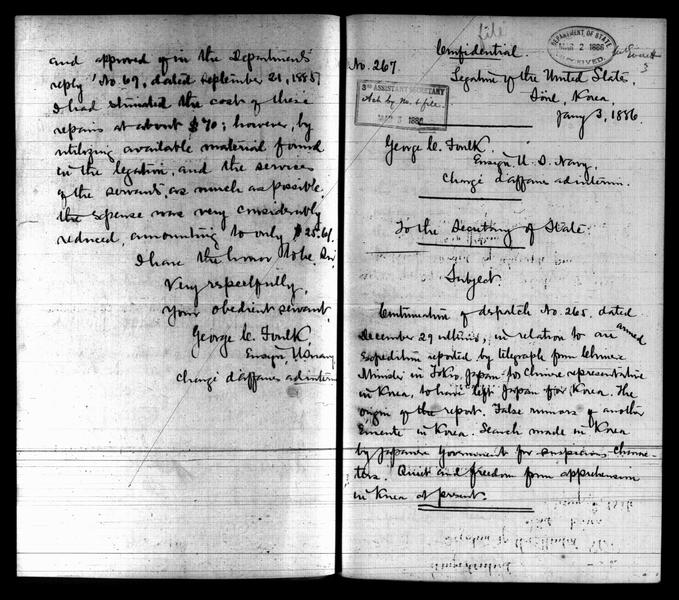 and approved of in the Department's
reply No. 69, dated September 21, 1885.
I had estimated the cost of these
repairs at about $70; however, by
utilizing available material found
in the legation, and the services
of the servants, as much as possible,
the expense was very considerably
reduced, amounting to only $25.61.
I have the honor to be, Sir,
Very respectfully,
Your obedient servant,
George C. Foulk,
Ensign, U.S. Navy,
Chargé d'affaires ad interim
file
Confidential.
DEPARTMENT OF STATE
MAR 2 1886
RECEIVED.
No. 267.
Legation of the United States,
Söul, Korea,
Jany 3, 1886.
3RD ASSISTANT SECRETARY
Ack by No. & file.
MAR 3 1886
George C. Foulk.
Ensign, U.S. Navy,
Chargé d'affaires ad interim.
To the Secretary of State.
Subject.
Continuation of dispatch No. 265, dated
December 29 ultimo, in relation to an armed
Expedition reported by telegraph from Chinese
Minister in Tokio, Japan to Chinese representative
in Korea, to have left Japan for Korea. The
origin of the report. False rumors of another
Emeute in Korea. Search made in Korea
by Japanese Government for suspicious charac-
ters. Quiet and freedom from apprehension
in Korea at present.